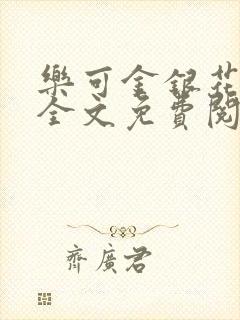 樂可金銀花
全文免費閱
齊廣君